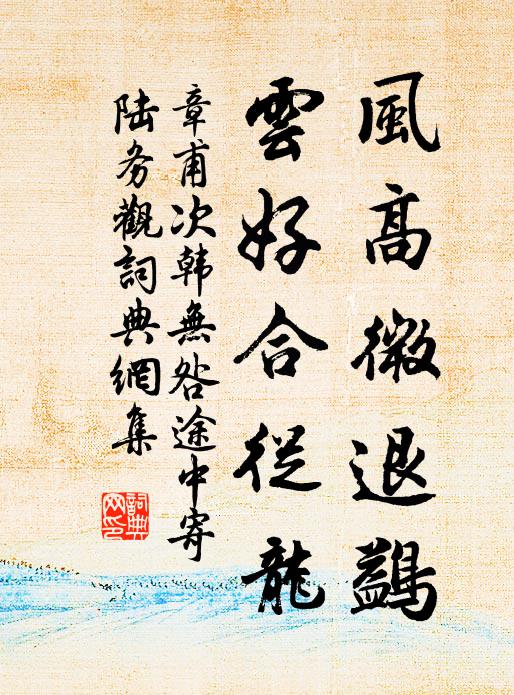 風高微退鷁
雲好合從龍
章甫次韩無咎途中寄
陆务觀詞典網集
詞典网印